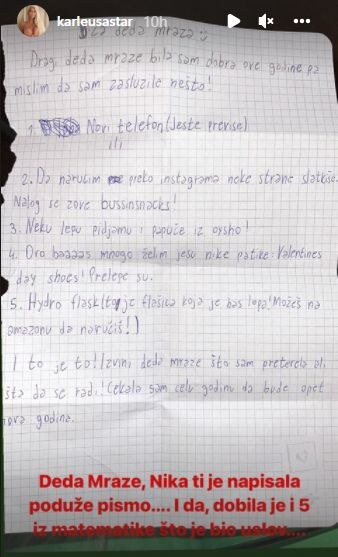 karleusastar 10h
Za deda mraza
Dragi deda mraze bila sam dobra ove godine pa
mislim da sam zaslužile nešto!
1. Novi telefon (Jeste previse)
ili
2. Da narucim preko instagrama neke strane slatkiše.
Nalog se zove bussinsnacks!
3. Neku lepu pidjamu i papuče iz oysho!
4. Ovo baaaas mnogo želim jesu nike patike Valentines
day shoes! Prelepe su.
5. Hydro flask (to je flašica koja je bas lepa! Možeš na
amazonu da naručiš!)
I to je to! Izvini deda mraze što sam preterela ali
šta da se radi! Čekala sam celu godinu da bude opet
nova godina.
Deda Mraze, Nika ti je napisala
poduže pismo.... I da, dobila je i 5
iz matematike što je bio uslov....